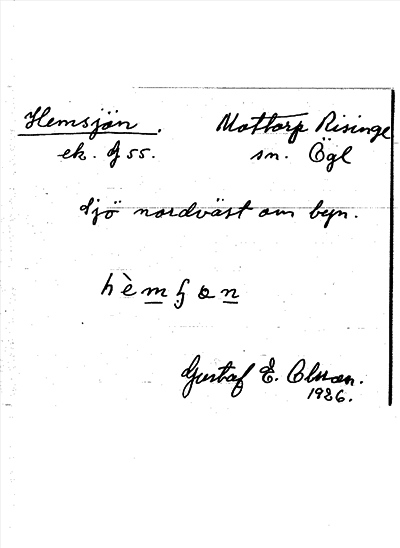 Hemsjön. Mottorp Risinge
ek. J 55. sn. Ögl
Sjö nordväst om byn.
hèmʃɷn
Gustaf E. Olsson.
1926.